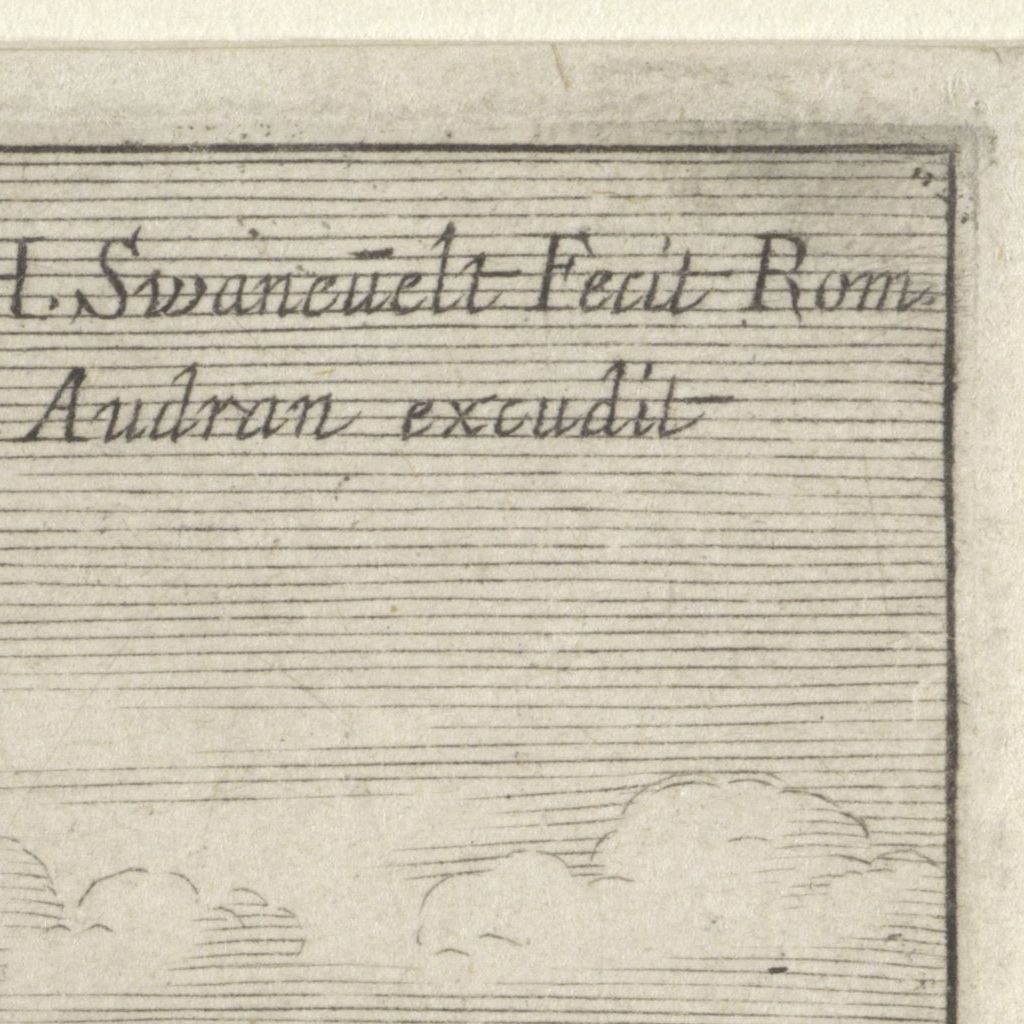 H. Swaneūelt Fecit Rom.
Audran excudit